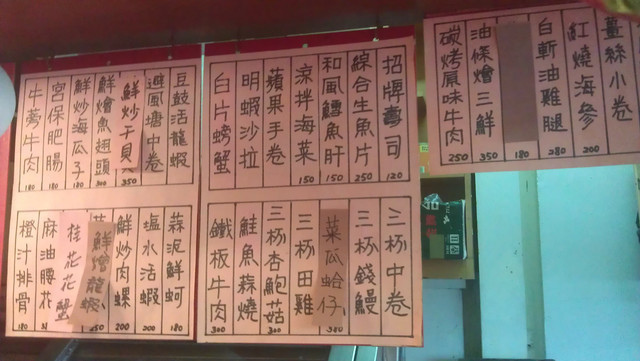 薑絲小卷
紅燒海參 200
白斬油雞腿 280
180
油條燴三鮮 350
碳烤原味牛肉 250
招牌壽司 120
綜合生魚片 250
和風鱈魚肝 150
涼拌海菜 150
蘋果手卷
明蝦沙拉
白片螃蟹
三杯中卷
三杯錢鰻
菜瓜蛤仔 380
三杯田雞
三杯杏鮑菇 300
鮭魚蒜燒
鐵板牛肉 300
豆鼓活龍蝦
避風塘中卷
鮮炒干貝 350
鮮燴魚翅頭 300
鮮炒海瓜子 180
宮保肥腸 180
牛蒡牛肉 180
蒜泥鮮蚵 180
塩水活蝦 200
鮮炒肉螺 200
鮮燴龍蝦 250
桂花花蟹
麻油腰花
橙汁排骨 180